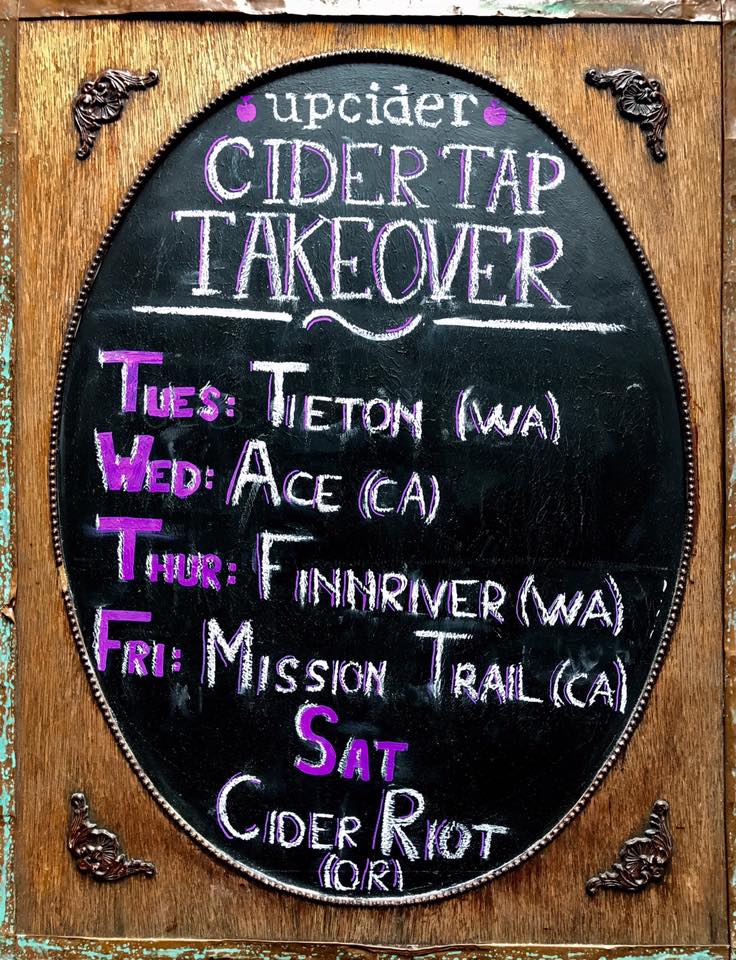 upcider
CIDER TAP
TAKEOVER
TUES: TIETON (WA)
WED: ACE (CA)
THUR: FINNRIVER (WA)
FRI: MISSION TRAIL (CA)
SAT
CIDER RIOT
(OR)